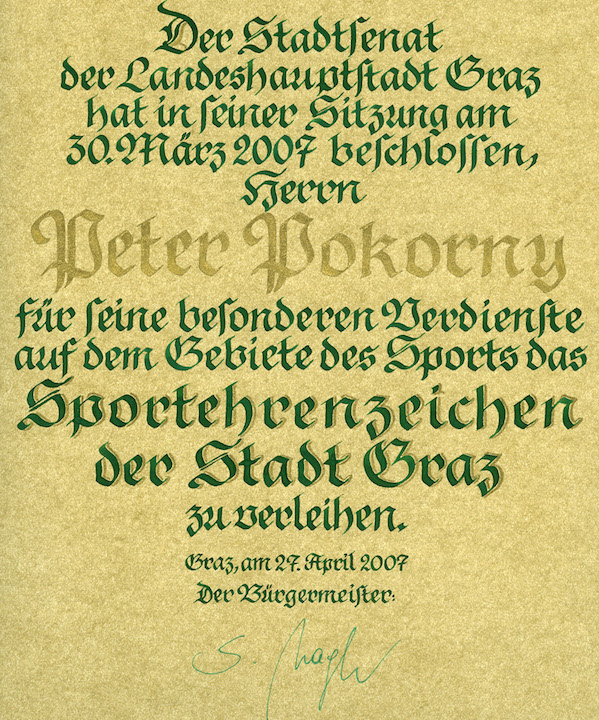 Der Stadtſenat
der Landeshauptſtadt Graz
hat in ſeiner Sitzung am
30. März 2007 beſchloſſen,
Herrn
Peter Pokorny
für ſeine beſonderen Verdienſte
auf dem Gebiete des Sports das
Sportehrenzeichen
der Stadt Graz
zu verleihen.
Graz, am 27. April 2007
Der Bürgermeiſter:
S. Nagl